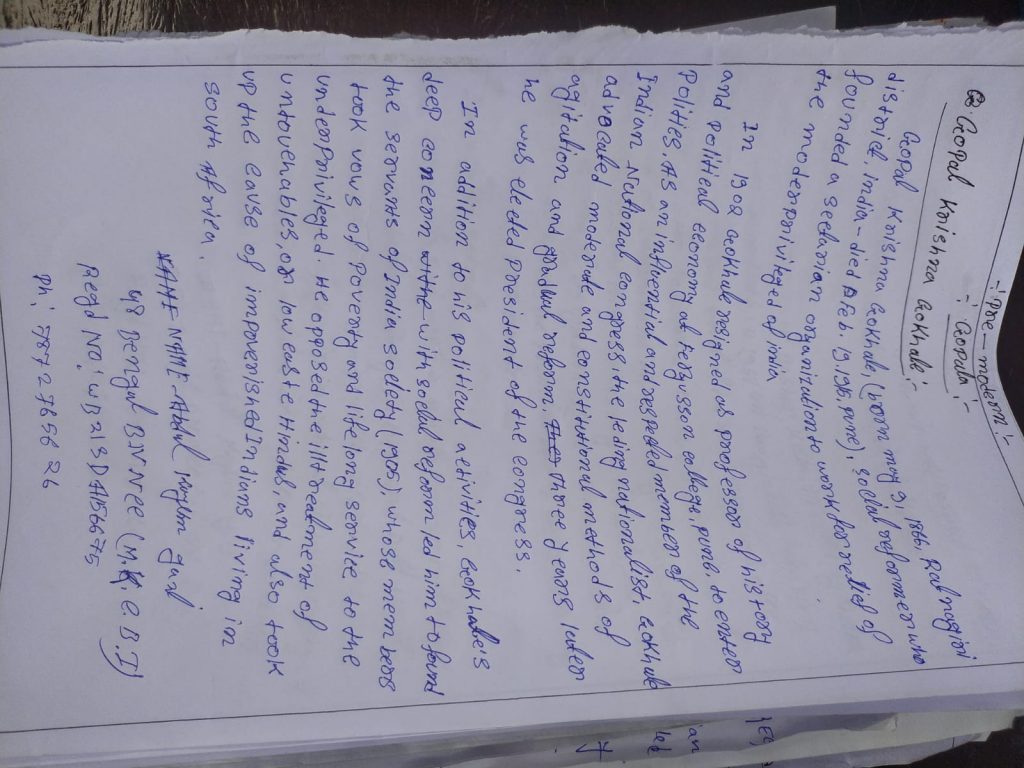 -: Pore-modern :-
-: Gopala :-
Q. Gopal Krishna Gokhale :-
Gopal Krishna Gokhale, (born may 9, 1866, Ratnagiri
district, India-died Feb. 19, 1915, pune), Social reformer who
founded a sectarian organization to work for relief of
the modern privileged of india
In 1902 Gokhale resigned as professor of history
and political economy at fergusson college, pune, to enter
Politics. As an influential and respected member of the
Indian National congress, the leding nationalist, Gokhale
advocated moderate and constitutional methods of
agitation and gradual reform. three years later
he was elected president of the congress.
In addition to his political activities, Gokhale's
deep concern with social reform led him to found
the servants of India society (1905), whose members
took vows of Poverty and lifelong service to the
underprivileged. He opposed the illtreatment of
untouchables, or low easte Hindus, and also took
up the cause of impoverished Indians living in
south Africa.
NAME-Abdul
48 Bengal BN NCC
Regd No: WB21SDA156675
Ph: